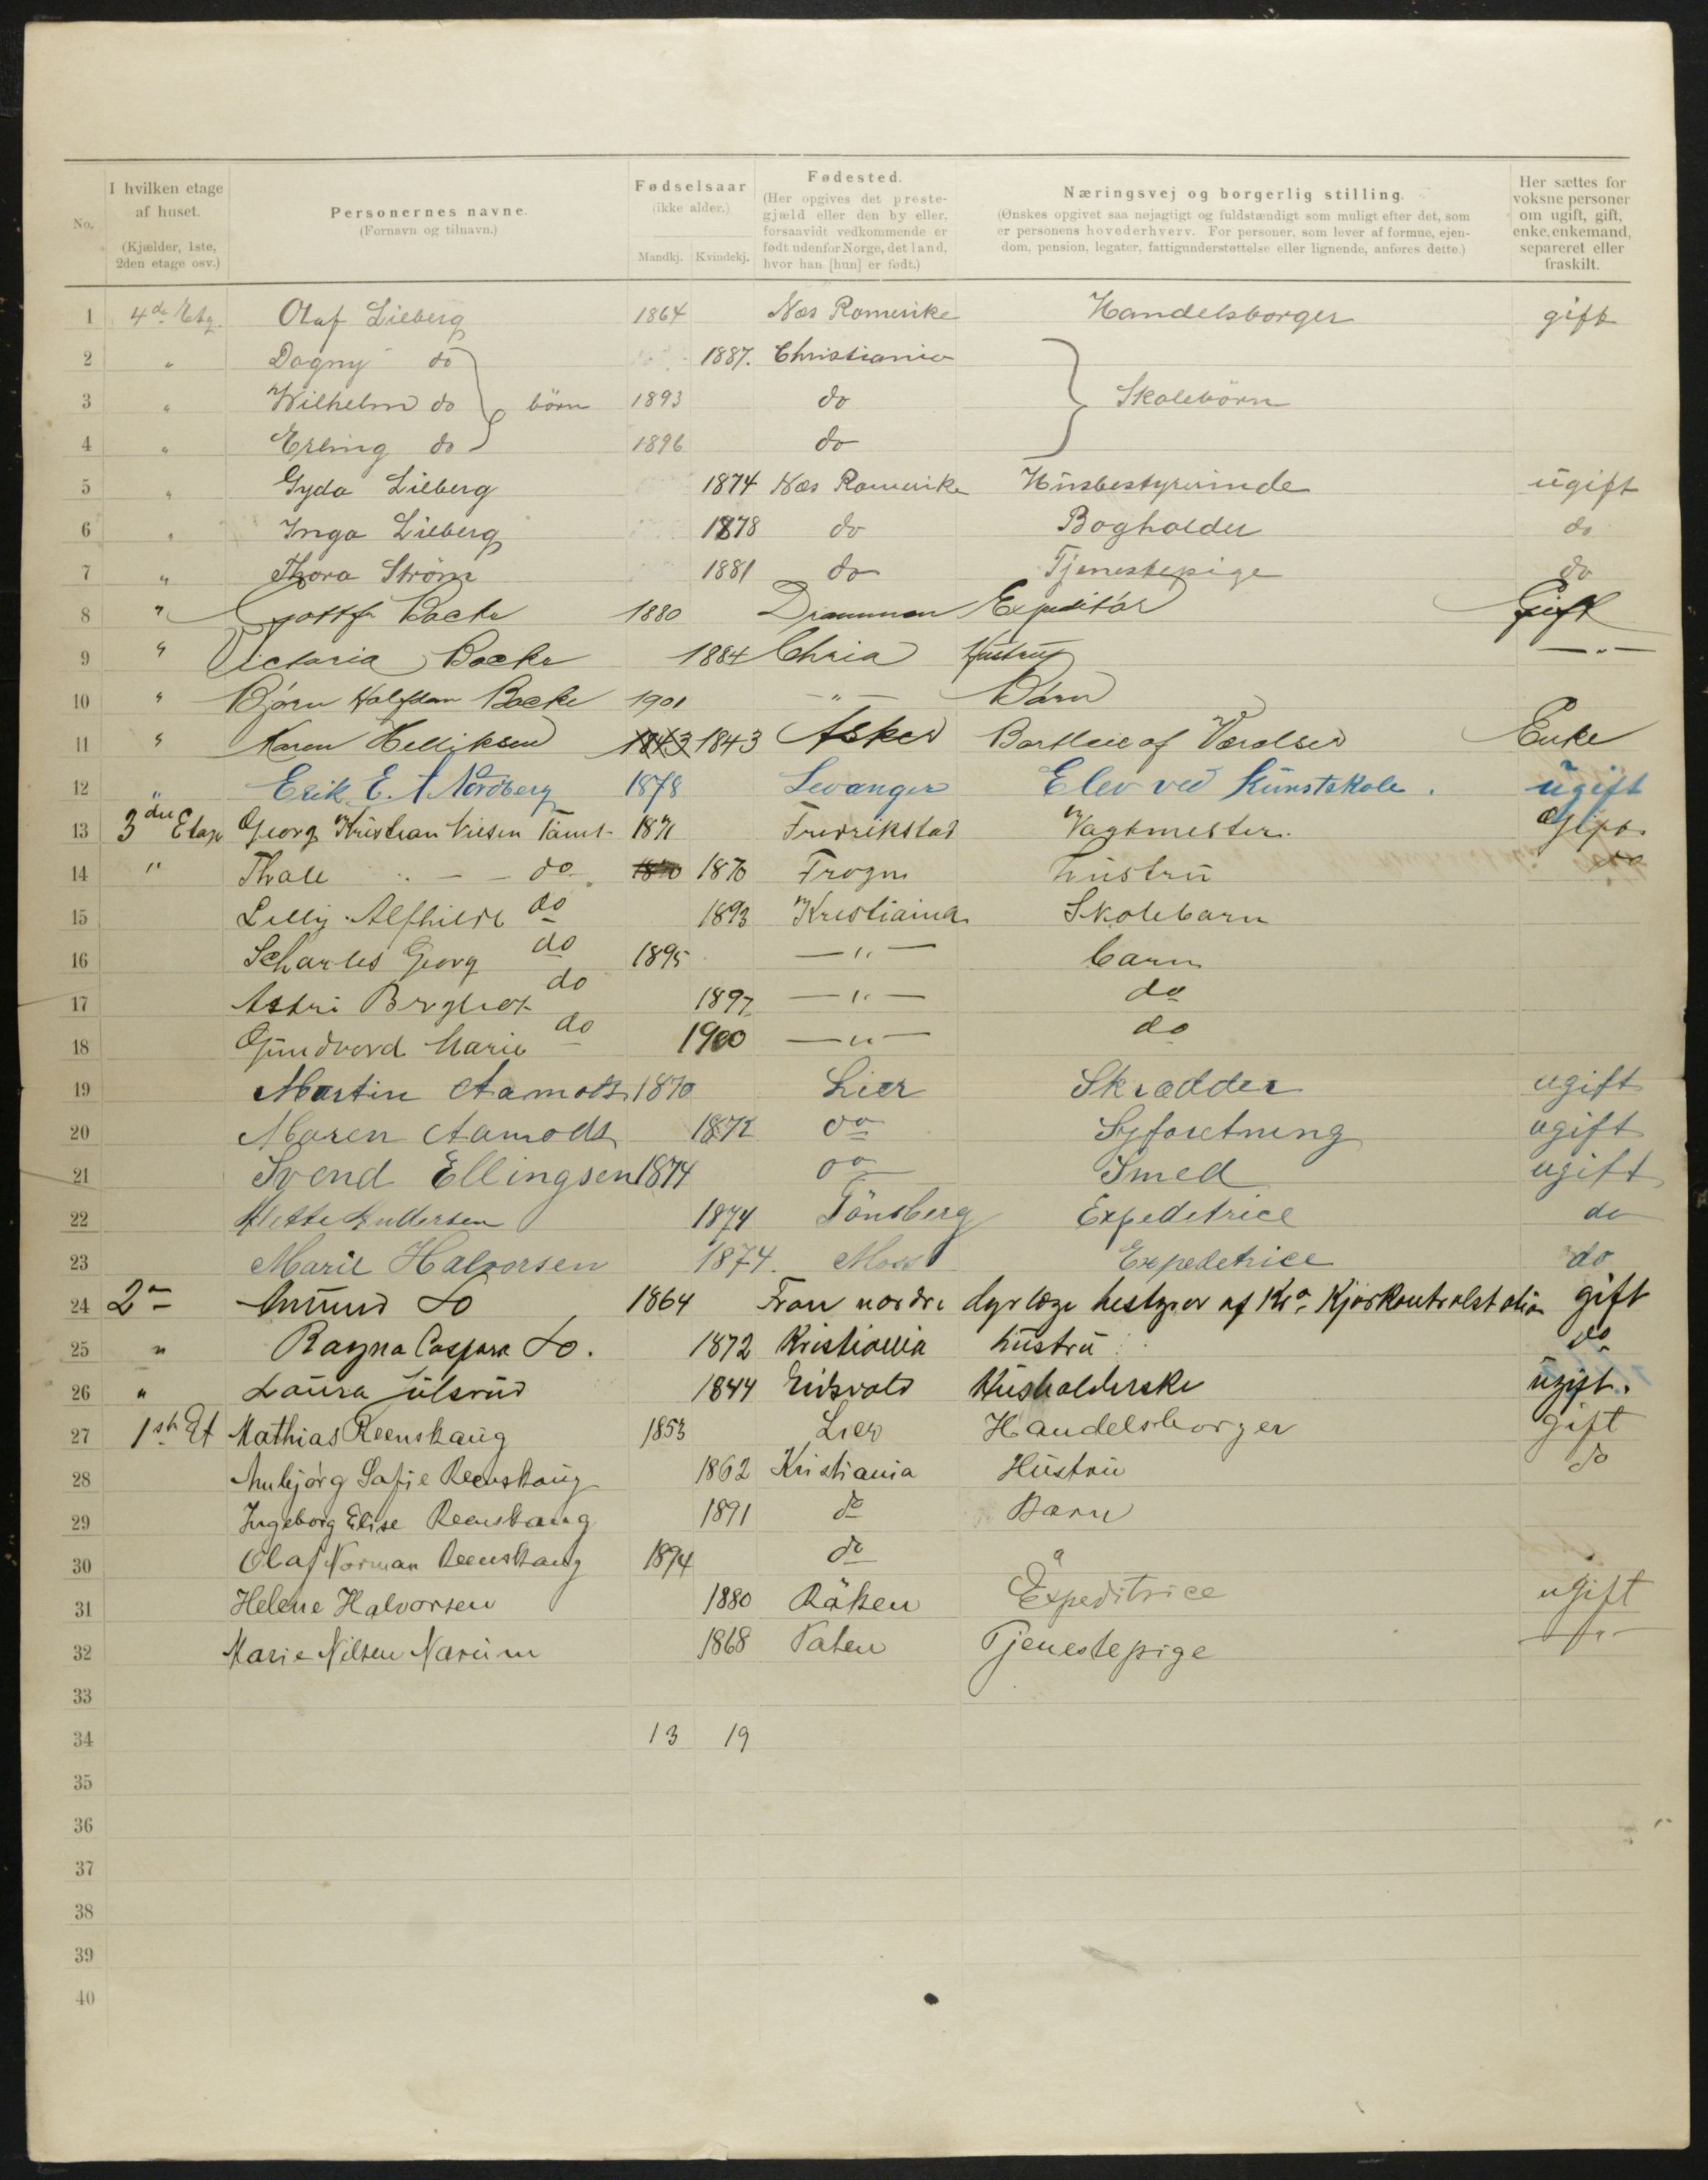 No.
I hvilken etage
af huset.
(Kjælder, 1ste,
2den etage osv.)
Personernes navne.
(Fornavn og tilnavn.)
Fødselsaar
(ikke alder.)
Mandkj. Kvindekj.
Fødested.
(Her opgives det preste-
gjæld eller den by eller,
forsaavidt vedkommende er
født udenfor Norge, det land,
hvor han [hun] er født.)
Næringsvej og borgerlig stilling.
(Ønskes opgivet saa nøjagtigt og fuldstændigt som muligt efter det, som
er personens hovederhverv. For personer, som lever af formue, ejen-
dom, pension, legater, fattigunderstøttelse eller lignende, anføres dette.)
Her sættes for
voksne personer
om ugift, gift,
enke, enkemand,
separeret eller
fraskilt.
1 4de Etg. Olaf Lieberg 1864 Næs Romerike Handelsborger gift
2 " Dagny do 1887. Christiania
3 " Wilhelm do børn 1893 do Skolebørn
4 " Erling do 1896 do
5 " Gyda Lieberg 1874 Næs Romerike Husbestyrerinde ugift
6 " Inga Lieberg 1878 do Bogholder do
7 " Thora Strøm 1881 do Tjenestepige do
8 " Backe 1880 Drammen Expeditør Gift
9 " Victoria Backe 1884 Chria Hustru —"—
10 " Bjørn Halfdan Backe 1901 —"— Barn
11 " Karen Helliksen 1843 1843 Asker Enke
12 " Erik E. A Nordberg 1878 Levanger Elev ved Kunstskole. ugift
13 3die Etage Georg Kristian 1871 Fredrikstad Vagtmester. Gift.
14 " Thale " — — do 1870 Frogn hustru do
15 Lilly Alfhilde do 1893 Kristiania Skolebarn
16 Scharles Georg do 1895 —"— barn
17 Astri do 1897 —"— do
18 Gundvord Marie do 1900 —"— do
19 Martin Aamodt 1870 Lier Skrædder ugift
20 Maren Aamodt 1872 do Syforetning ugift
21 Svend Ellingsen 1874 do Smed ugift
22 Mette Andersen 1874 Tønsberg Expeditrice do
23 Marie Halvorsen 1874. Moss Expedetrice do
24 2den Amund Lo 1864 Fron nordre dyrlæge bestyrer af Kra. Kjødkontrolstation gift
25 " Ragna Caspara Lo. 1872 Kristiania hustru do
26 " Laura Julsrud 1844 Eidsvold Husholderske ugift.
27 1ste Et Mathias Reenskaug 1853 Lier Handelsborger gift
28 Anbjørg Sofie Reenskaug 1862 Kristiania Hustru do
29 Ingeborg Elise Reenskaug 1891 do Barn
30 Olaf Norman Reenskaug 1894 do "
31 Helene Halvorsen 1880 Røken Expeditrice ugift
32 Marie Nilsen Narum 1868 Tjenestepige —"—
33
34 13 19
35
36
37
38
39
40